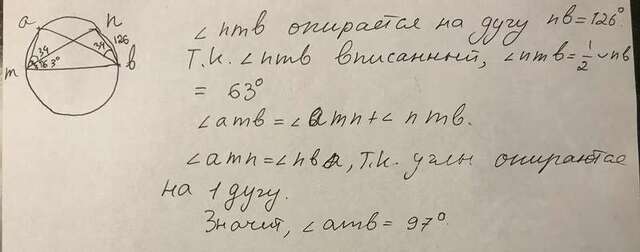 a
n
34
34
126
63°
m
b
∠nmb опирается на дугу nb=126°
Т.к. ∠nmb вписанный, ∠nmb=1/2 ◡nb
= 63°
∠amb=∠amn+∠nmb.
∠amn=∠nba, т.к. углы опираются
на 1 дугу.
Значит, ∠amb = 97°.